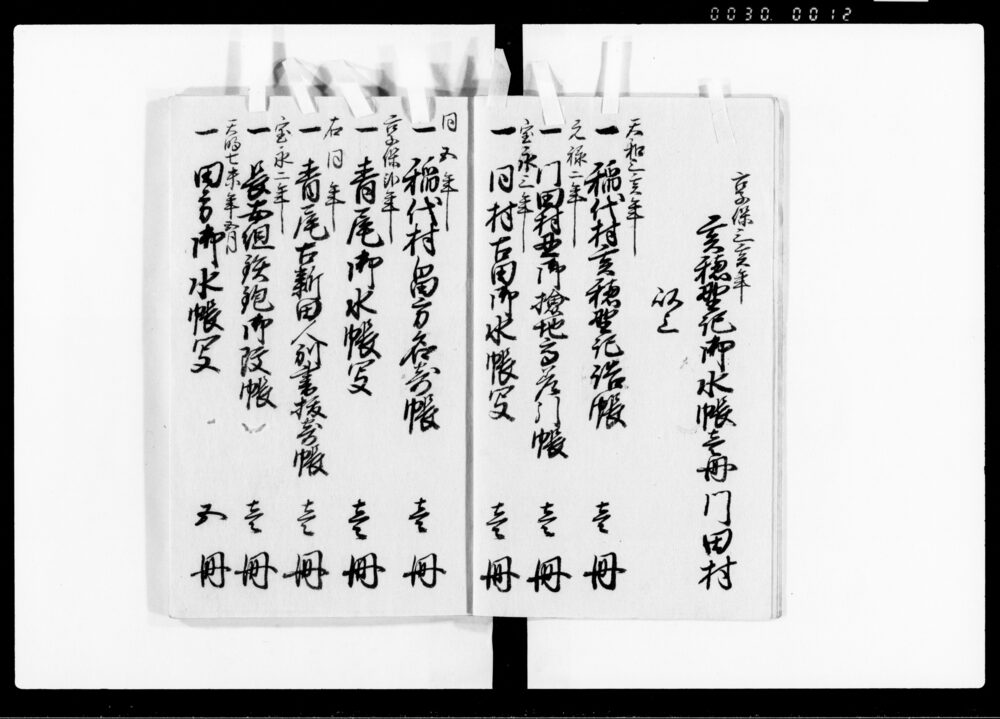 0030 0012
享保三亥年
亥穂野記御水帳壱冊門田村
以上
天和三亥年
一 稲代村亥穂野記帳 壱冊
元禄二年
一 門田村御検地高差引帳 壱冊
宝永三年
一 同村古田御水帳写 壱冊
同五年
一 稲代村畠方名寄帳 壱冊
享保 年
一 青尾御水帳写 壱冊
右同年
一 青尾古新田人別書抜寄帳 壱冊
宝永二年
一 長 組鉄炮御改帳 壱冊
天明七未年五月
一 田方御水帳写 五冊